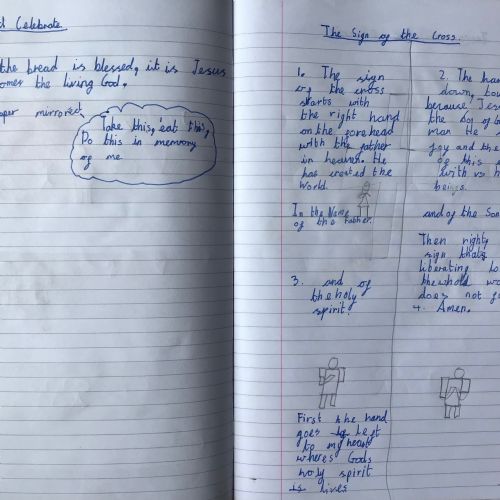 d Celebrate.
the bread is blessed, it is Jesus
comes the living God.
Take this, eat this,
Do this in memory
of me.
The Sign of the Cross.
1. The sign
of the cross
starts with
the right hand
on the forehead
with the father
in heaven. He
has created the
World.
In the Name
of the Father.
2. The han
down, tow
because Jes
the Son of G
man He
joy and the
of this
with us h
beings.
and of the Son
Then right
sign thats
liberating
the whold wo
does not
3. and of
the holy
spirit.
4. Amen.
First the hand
goes to left
to my heart
wheres Gods
holy spirit
lives